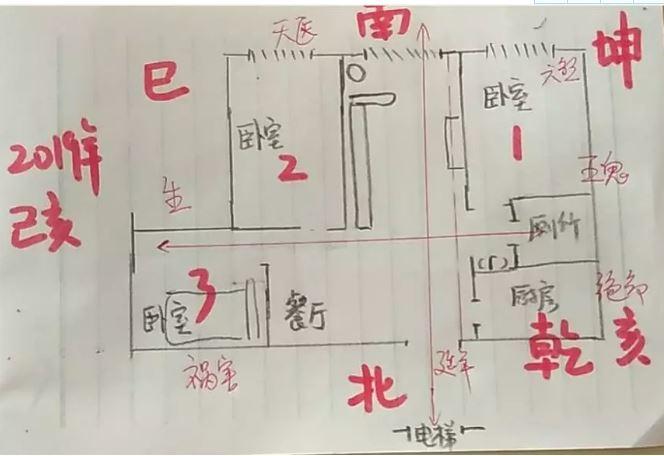 天医
南
坤
巳
六煞
卧室
1
卧室
2
2019年
己亥
生
五鬼
厕所
3
卧室
餐厅
厨房
绝命
乾
亥
祸害
北
延年
电梯